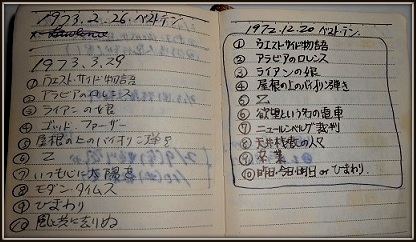 1973.2.26. ベスト・テン.
1973.3.29
① ウエスト・サイド物語
② アラビアのロレンス
③ ライアンの娘
④ ゴッド・ファーザー
⑤ 屋根の上のバイオリン弾き
⑥ Z
⑦ いつも心に太陽を
⑧ モダン・タイムス
⑨ ひまわり
⑩ 風と共に去りぬ
1972.12.20 ベスト・テン.
① ウエスト・サイド物語
② アラビアのロレンス
③ ライアンの娘
④ 屋根の上のバイオリン弾き
⑤ Z
⑥ 欲望という名の電車
⑦ ニュールンベルグ裁判
⑧ 天井桟敷の人々
⑨ 卒業
⑩ 昨日・今日・明日 or ひまわり.